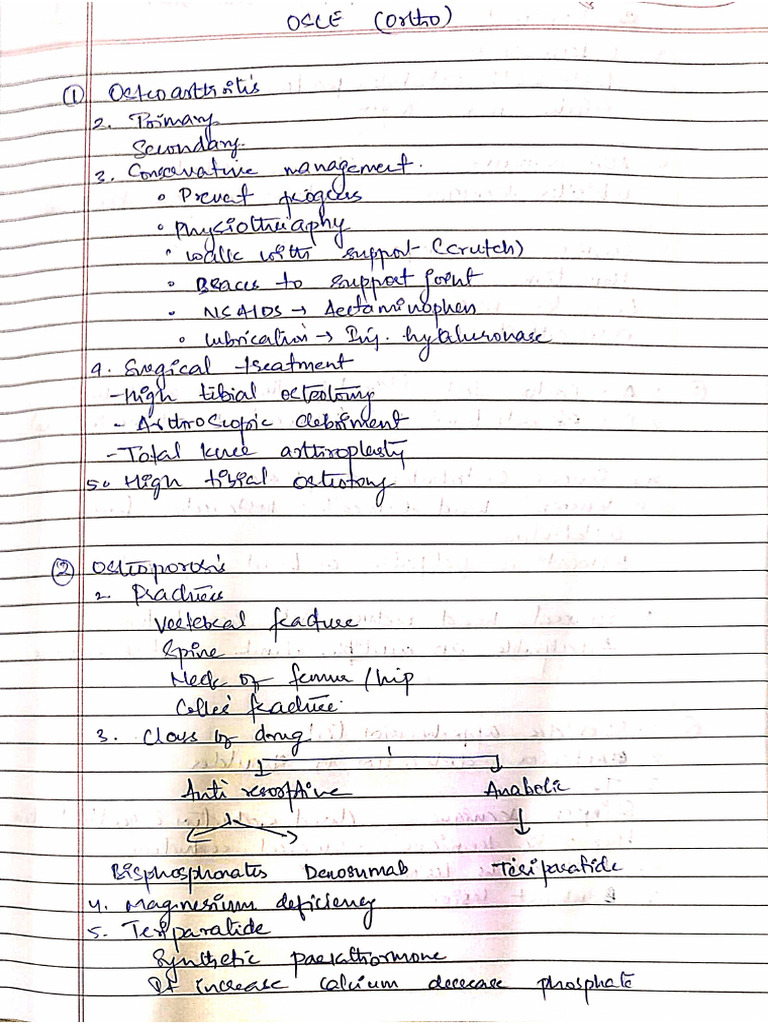 OSCE (Ortho)
① Osteoarthritis
2. Primary
Secondary
3. Conservative management.
• Prevent progress
• Physiotheraphy
• Walk with support (crutch)
• Braces to support joint
• NSAIDS → Acetaminophen
• Lubrication → Inj. hyaluronase
4. Surgical treatment
- High tibial osteotomy
- Arthroscopic debriment
- Total knee arthroplasty
5. High tibial osteotomy
② Osteoporosis
2. Fractures
Vertebral fracture
Spine
Neck of femur / hip
Colles' fracture.
3. Class of drug
Anti resorptive Anabolic
Bisphosphonates Denosumab Teriparatide
4. Magnesium deficiency
5. Teriparatide
Synthetic parathormone
It increase calcium decrease phosphate